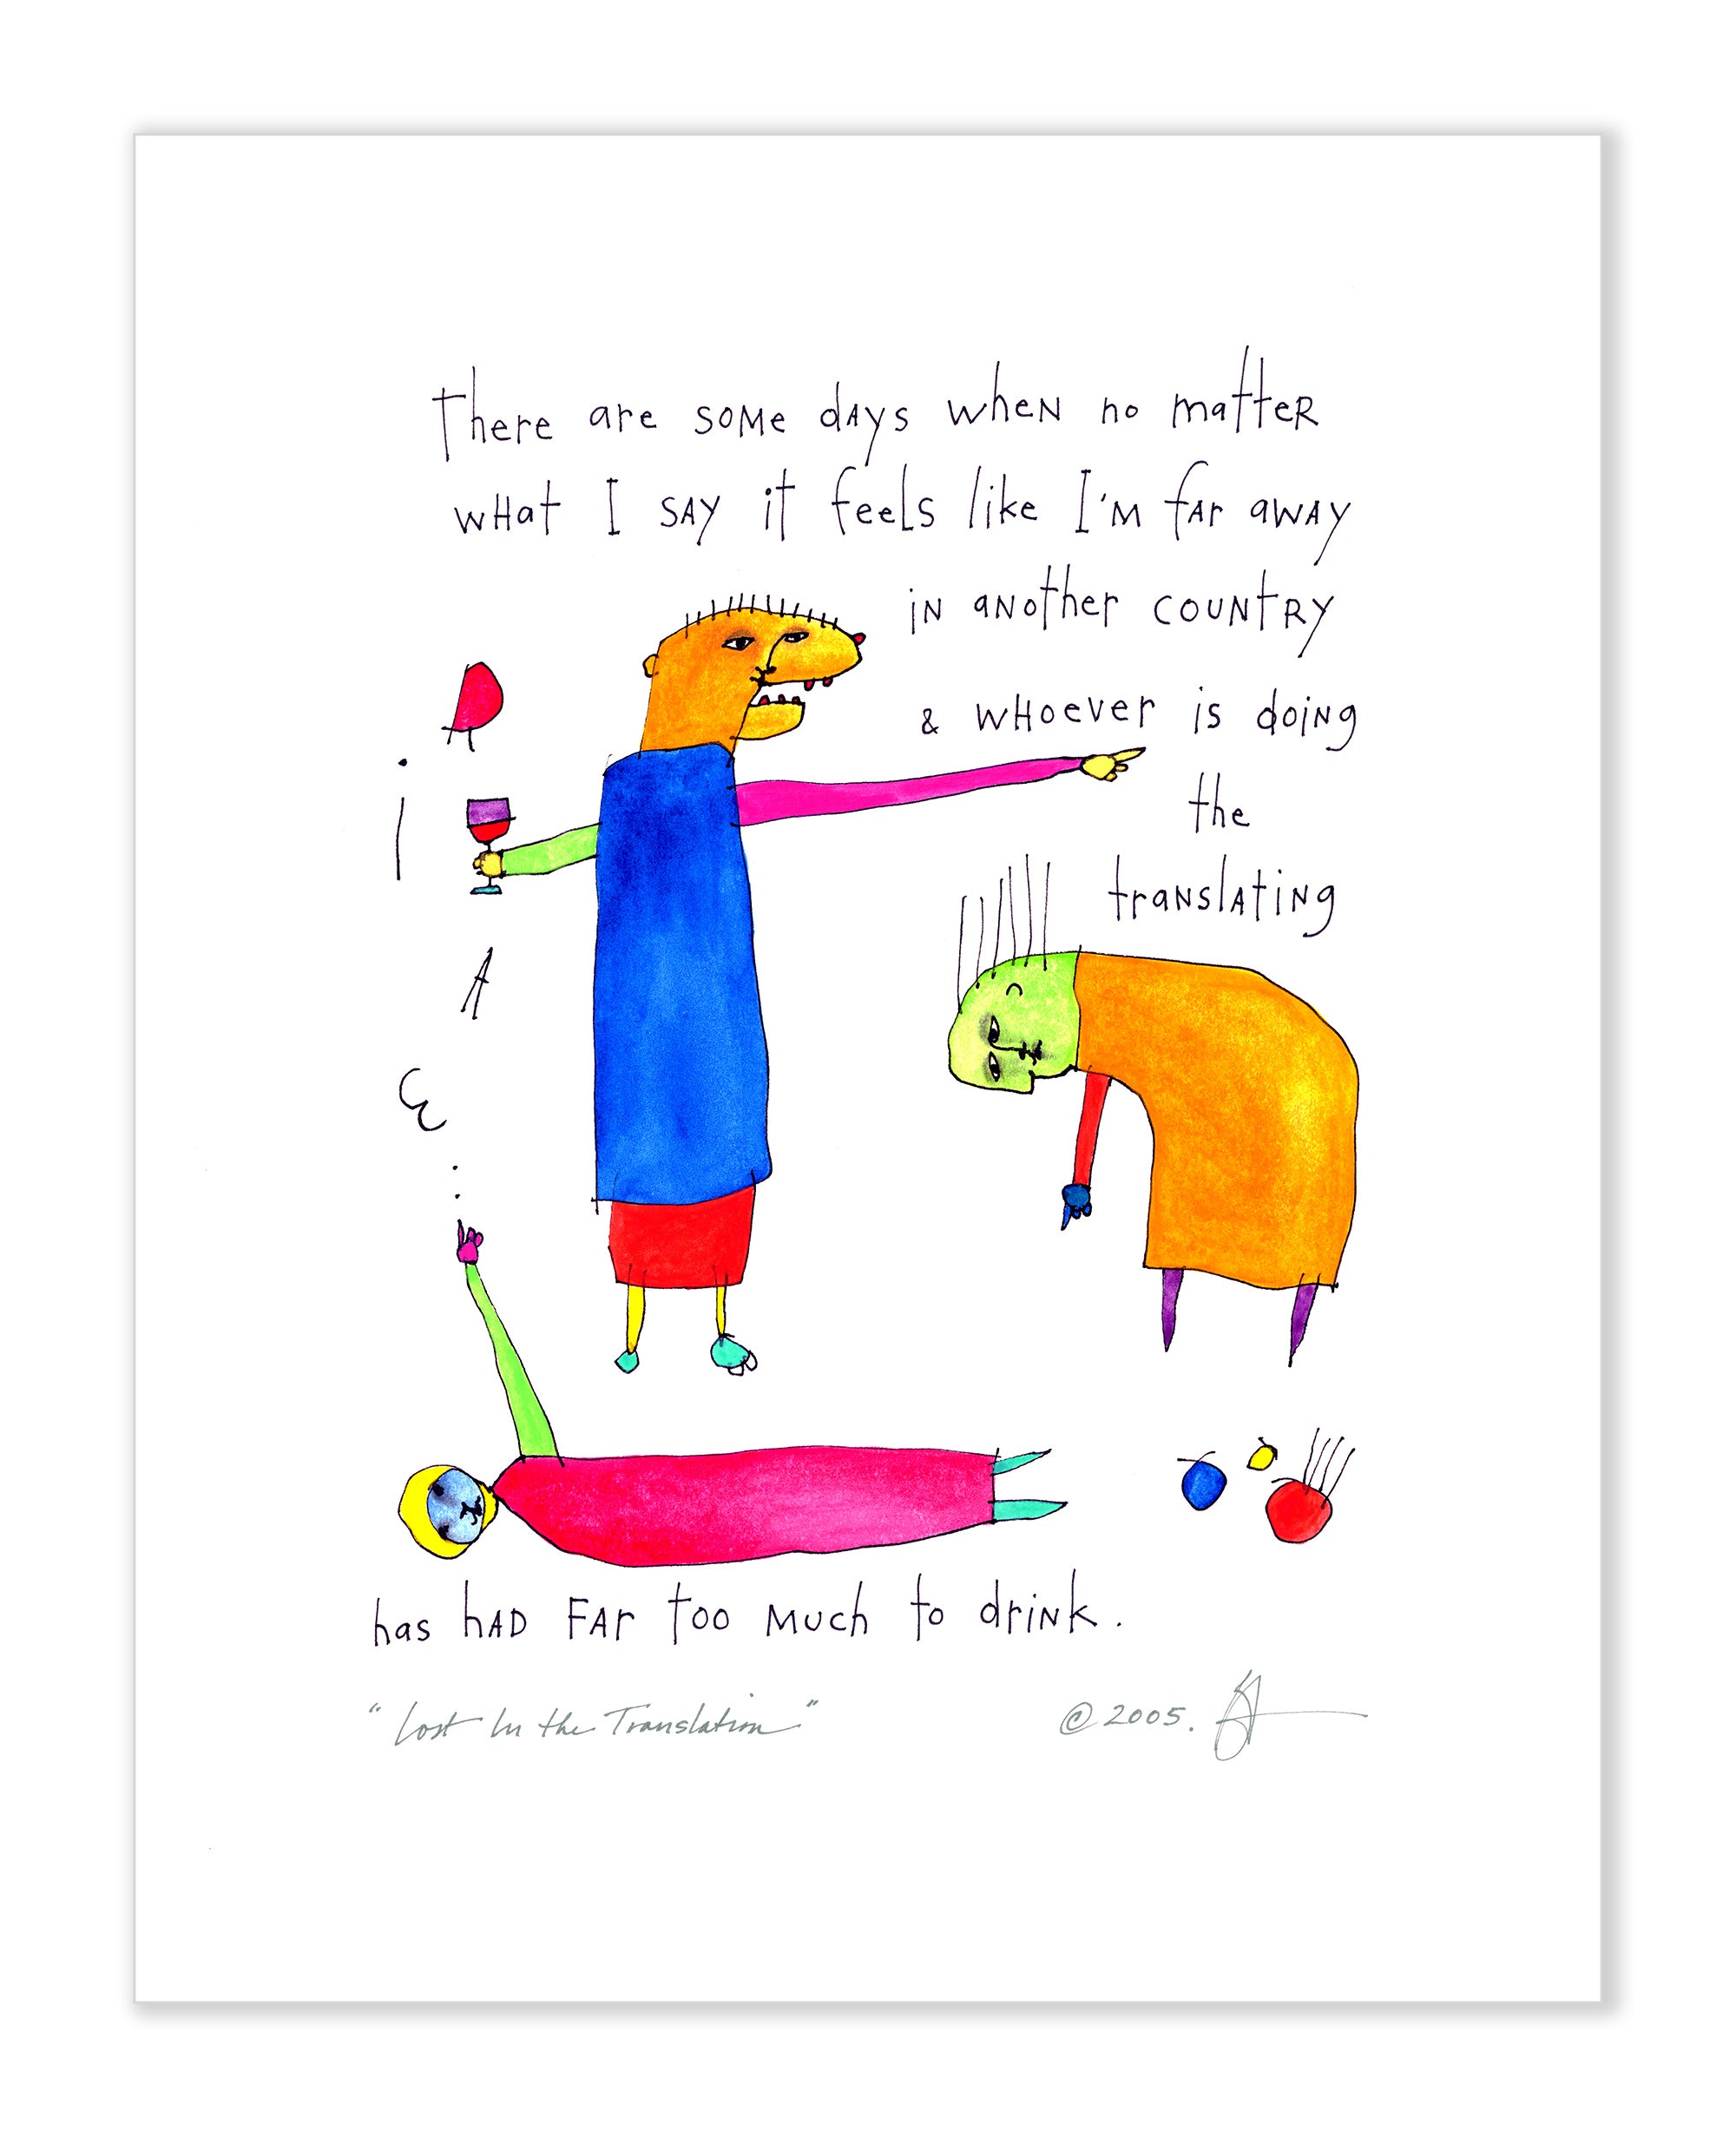 There are some days when no matter
what I say it feels like I'm far away
in another country
& whoever is doing
the
translating
i
A
has had far too much to drink.
"Lost In the Translation"
© 2005.